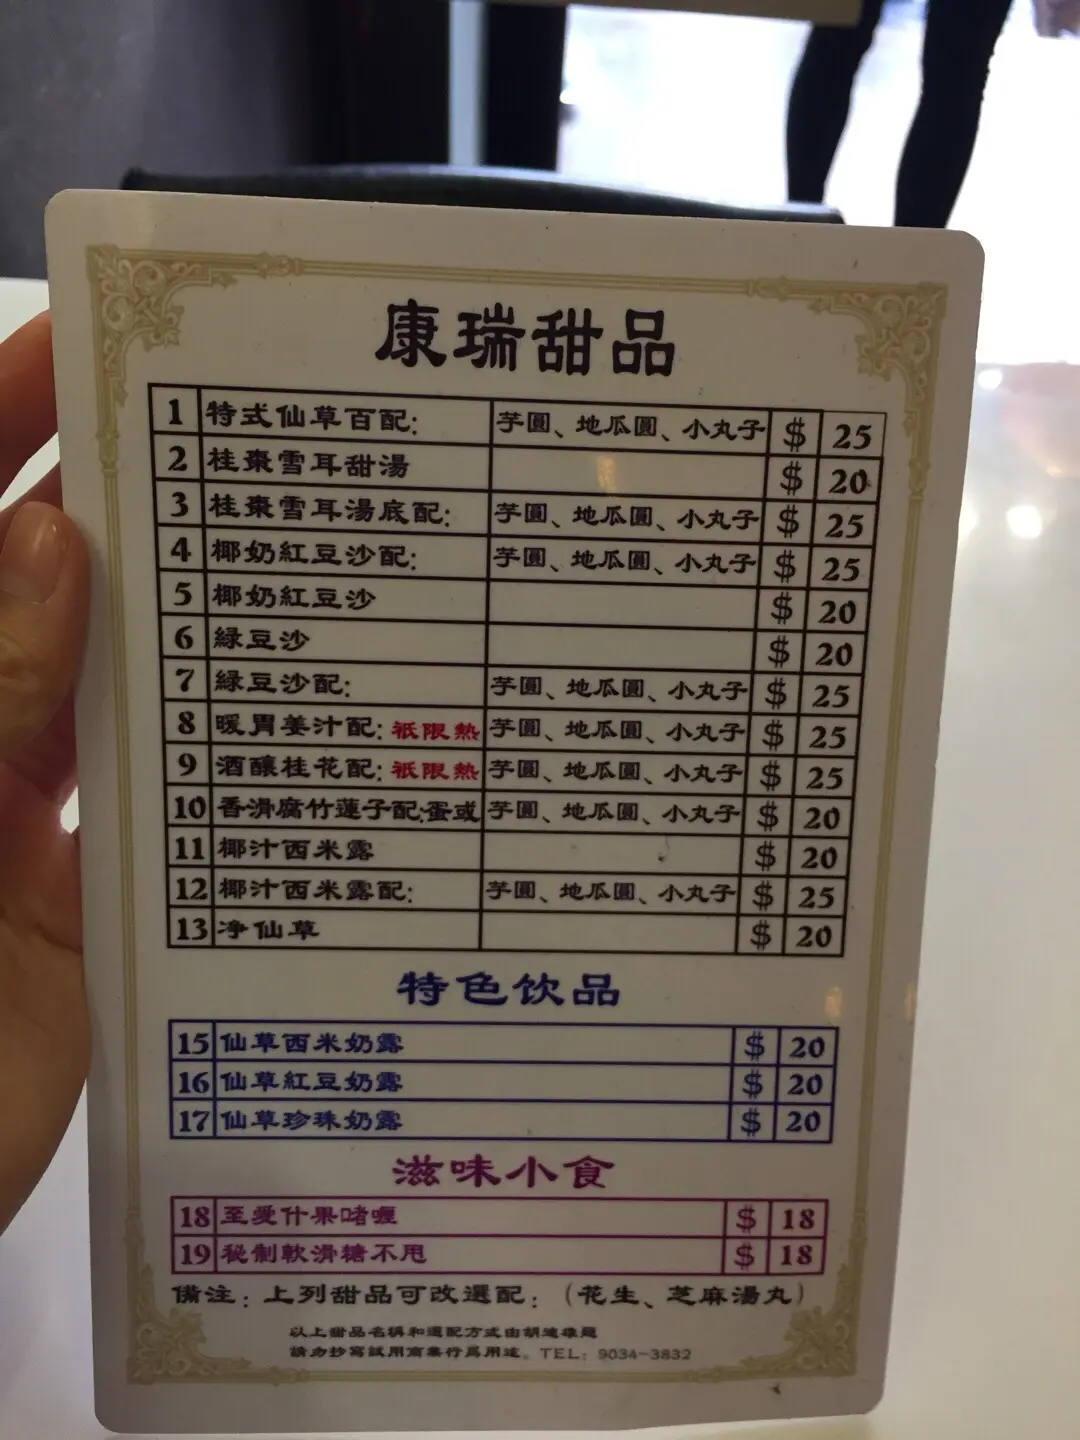 康瑞甜品
1 特式仙草百配: 芋圓、地瓜圓、小丸子 $ 25
2 桂棗雪耳甜湯 $ 20
3 桂棗雪耳湯底配: 芋圓、地瓜圓、小丸子 $ 25
4 椰奶紅豆沙配: 芋圓、地瓜圓、小丸子 $ 25
5 椰奶紅豆沙 $ 20
6 綠豆沙 $ 20
7 綠豆沙配: 芋圓、地瓜圓、小丸子 $ 25
8 暖胃姜汁配: 祇限熱 芋圓、地瓜圓、小丸子 $ 25
9 酒釀桂花配: 祇限熱 芋圓、地瓜圓、小丸子 $ 25
10 香滑腐竹蓮子配:蛋或 芋圓、地瓜圓、小丸子 $ 20
11 椰汁西米露 $ 20
12 椰汁西米露配: 芋圓、地瓜圓、小丸子 $ 25
13 净仙草 $ 20
特色饮品
15 仙草西米奶露 $ 20
16 仙草紅豆奶露 $ 20
17 仙草珍珠奶露 $ 20
滋味小食
18 至愛什果啫喱 $ 18
19 秘制軟滑糖不甩 $ 18
備注: 上列甜品可改選配: (花生、芝麻湯丸)
以上甜品名稱和選配方式由胡
請勿抄寫試用商業行爲用途。TEL: 9034-3832